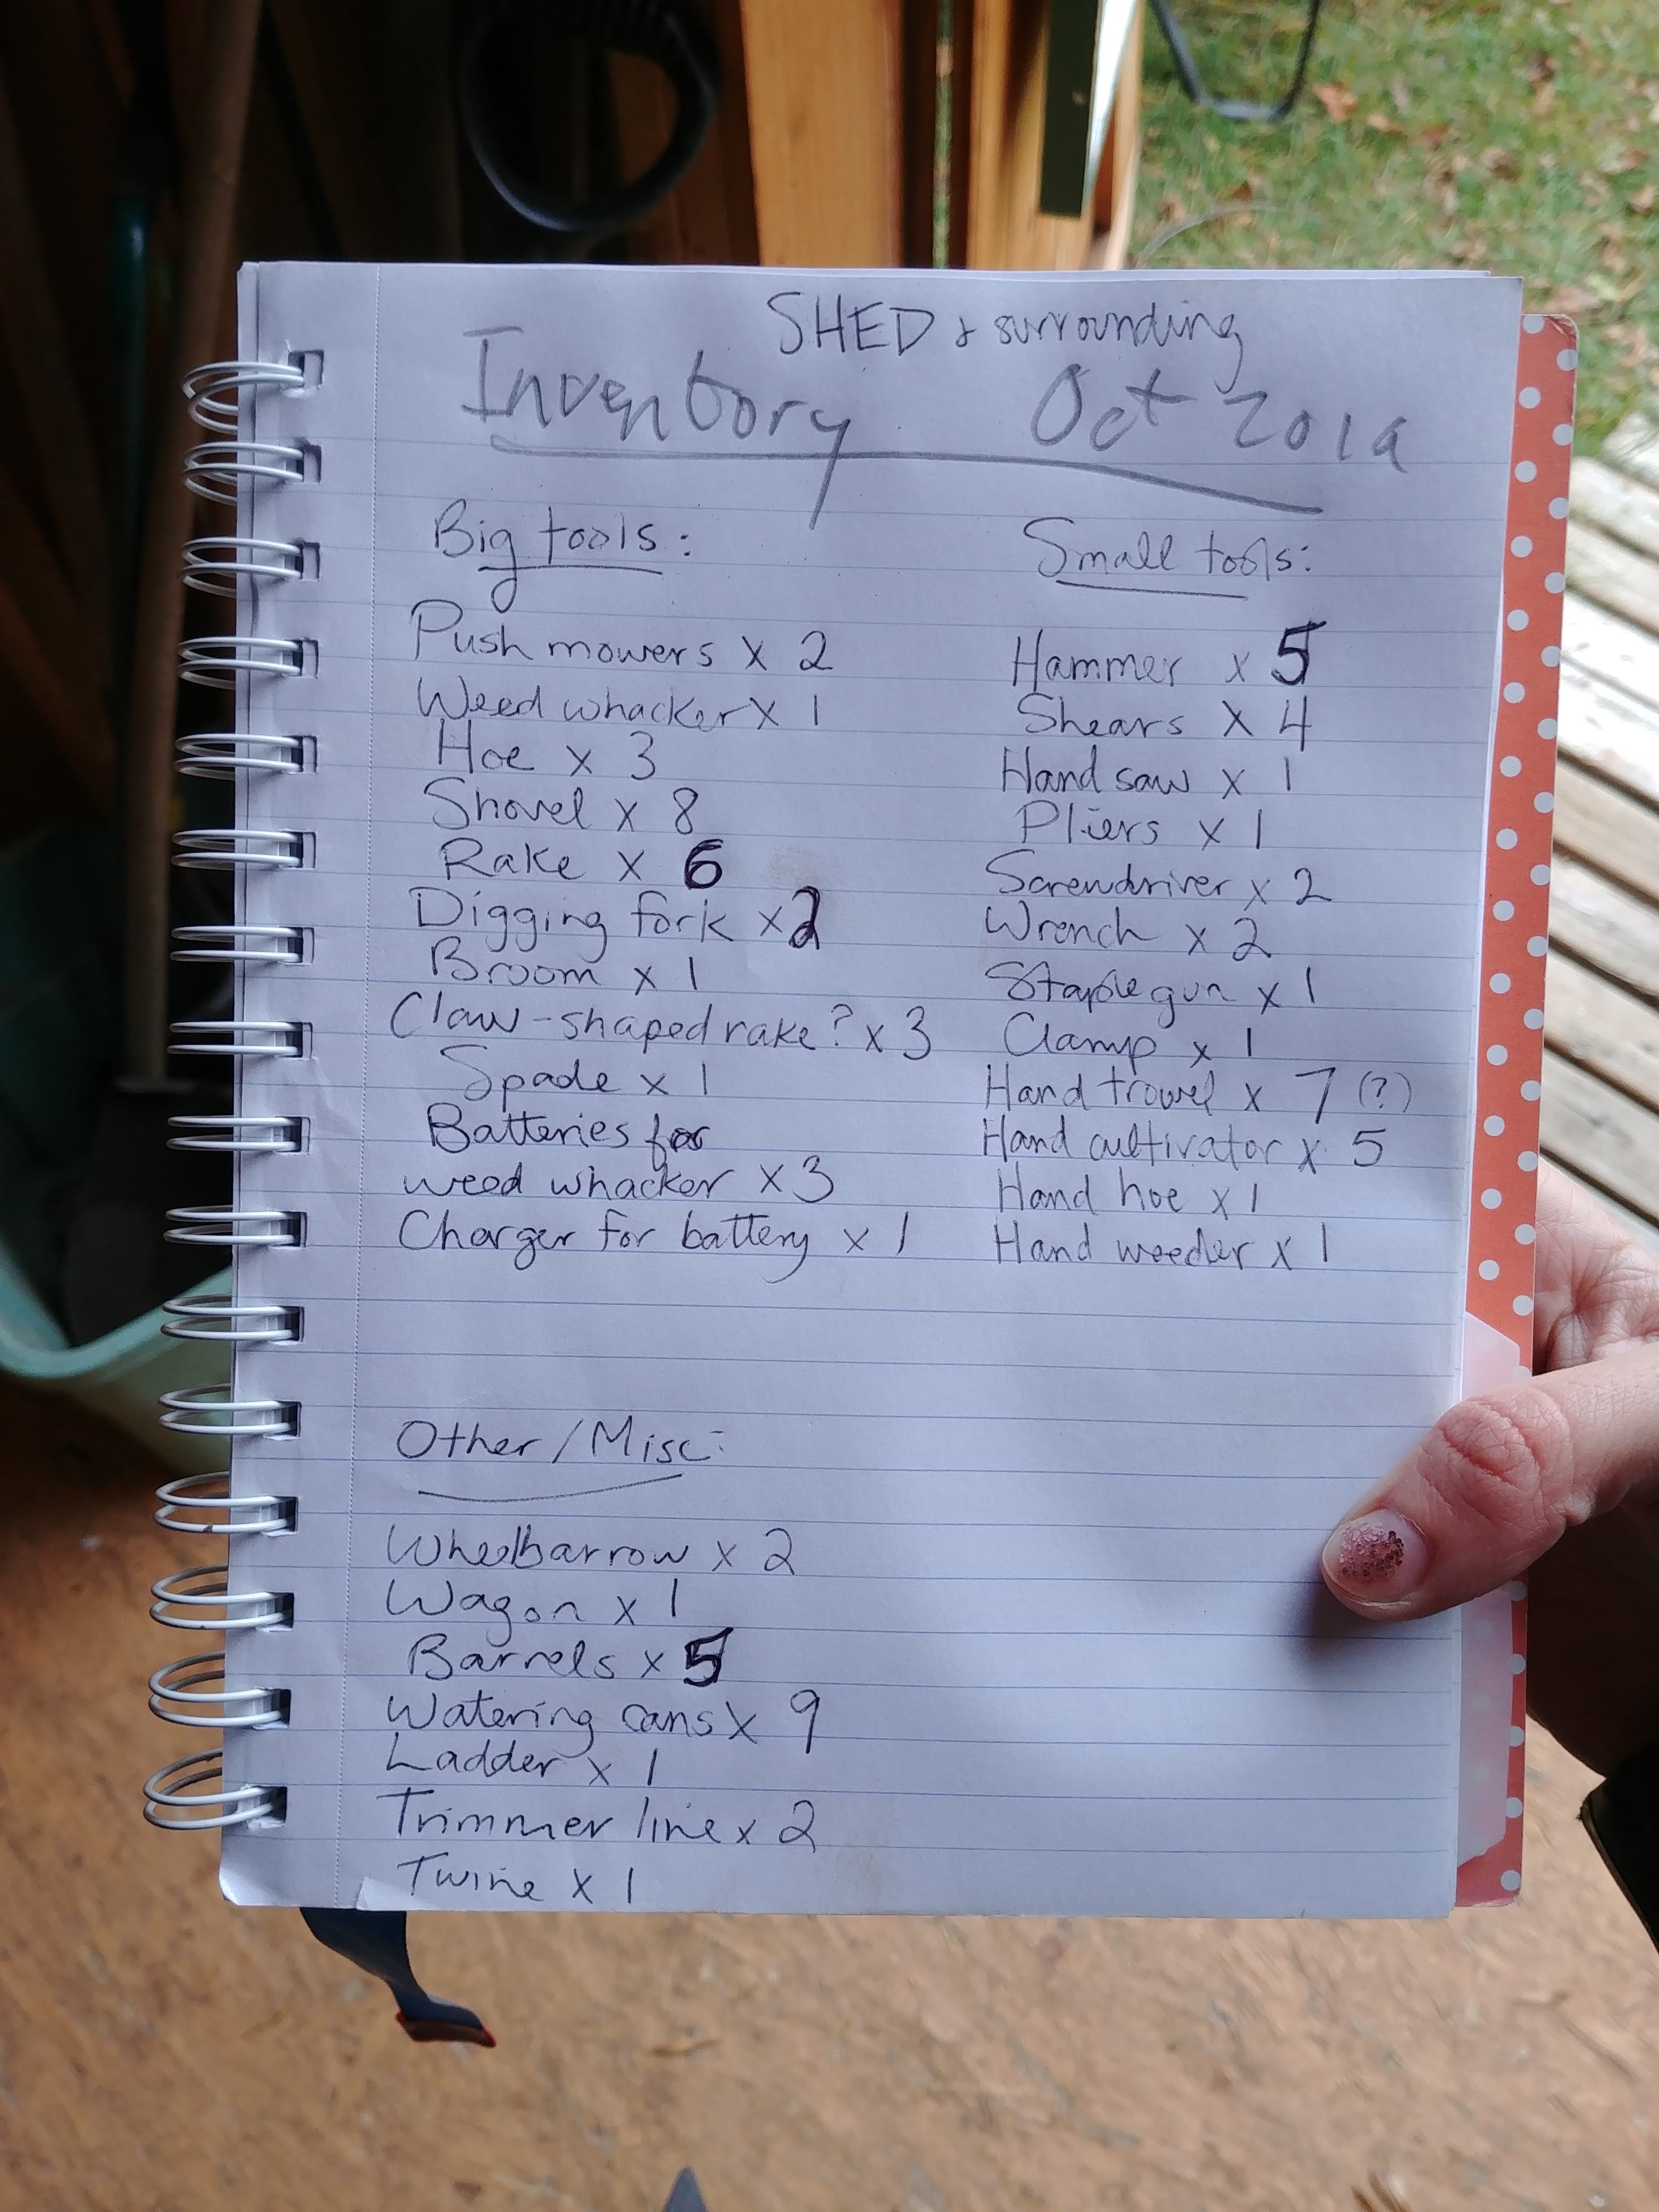 SHED & surrounding
Inventory Oct 2019
Big tools:
Push mowers x 2
Weed whacker x 1
Hoe x 3
Shovel x 8
Rake x 6
Digging fork x 2
Broom x 1
Claw-shaped rake? x 3
Spade x 1
Batteries for
weed whacker x 3
Charger for battery x 1
Small tools:
Hammer x 5
Shears x 4
Hand saw x 1
Pliers x 1
Screwdriver x 2
Wrench x 2
Staple gun x 1
Clamp x 1
Hand trowel x 7 (?)
Hand cultivator x 5
Hand hoe x 1
Hand weeder x 1
Other/Misc:
Wheelbarrow x 2
Wagon x 1
Barrels x 5
Watering cans x 9
Ladder x 1
Trimmer line x 2
Twine x 1